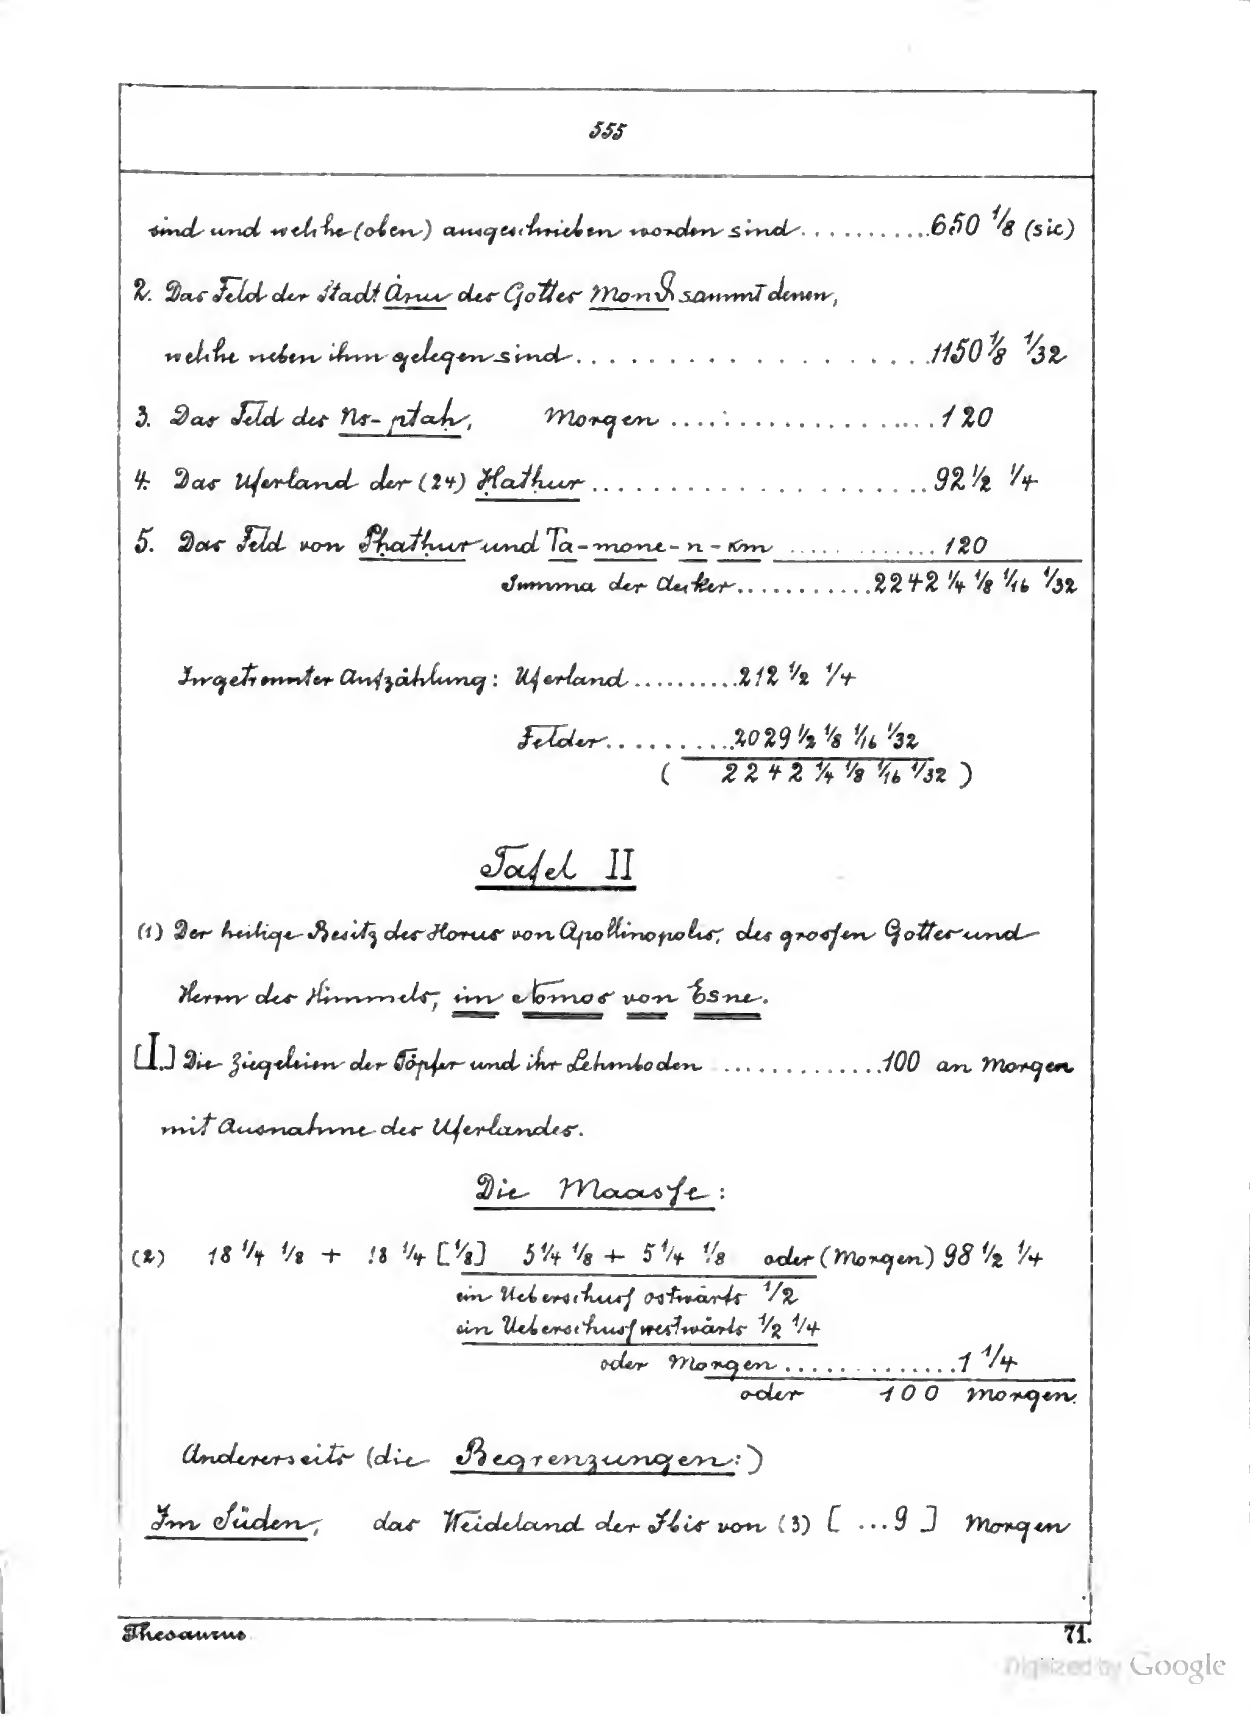 555
sind und welche (oben) ausgeschrieben worden sind............650 1/8 (sic)
2. Das Feld der Stadt Ȧnu des Gottes Monθ sammt denen,
welche neben ihm gelegen sind...................1150 1/8 1/32
3. Das Feld des Ns-ptaḥ, Morgen ...................120
4. Das Uferland der (24) Ḥatḥur.....................92 1/2 1/4
5. Das Feld von Phatḥur und Ta-mone-n-Km ............120
Summa der Aecker............2242 1/4 1/8 1/16 1/32
In getrennter Aufzählung: Uferland..........212 1/2 1/4
Felder...........2029 1/2 1/8 1/16 1/32
( 2242 1/4 1/8 1/16 1/32 )
Tafel II
(1) Der heilige Besitz des Horus von Apollinopolis, des grossen Gottes und
Herrn des Himmels, im Nomos von Esne.
[I.] Die Ziegeleien der Töpfer und ihr Lehmboden .............100 an Morgen
mit Ausnahme des Uferlandes.
Die Maasse:
(2) 18 1/4 1/8 + 18 1/4 [1/8] 5 1/4 1/8 + 5 1/4 1/8 oder (Morgen) 98 1/2 1/4
ein Ueberschuss ostwärts 1/2
ein Ueberschuss westwärts 1/2 1/4
oder Morgen..............1 1/4
oder 100 Morgen.
Andererseits (die Begrenzungen:)
Im Süden, das Weideland der Ibis von (3) [ ...9 ] Morgen
Thesaurus 71.
Digitized by Google